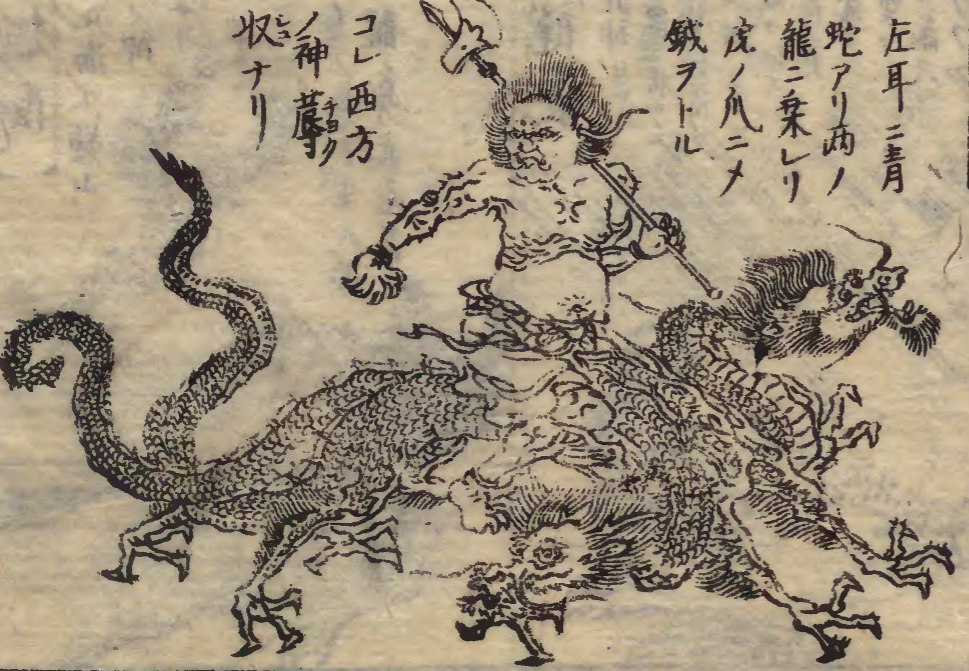 左耳ニ青
蛇アリ両ノ
龍ニ乗レリ
虎ノ爪ニメ
鉞ヲトル
コレ西方
ノ神蓐チヨク
収シユナリ